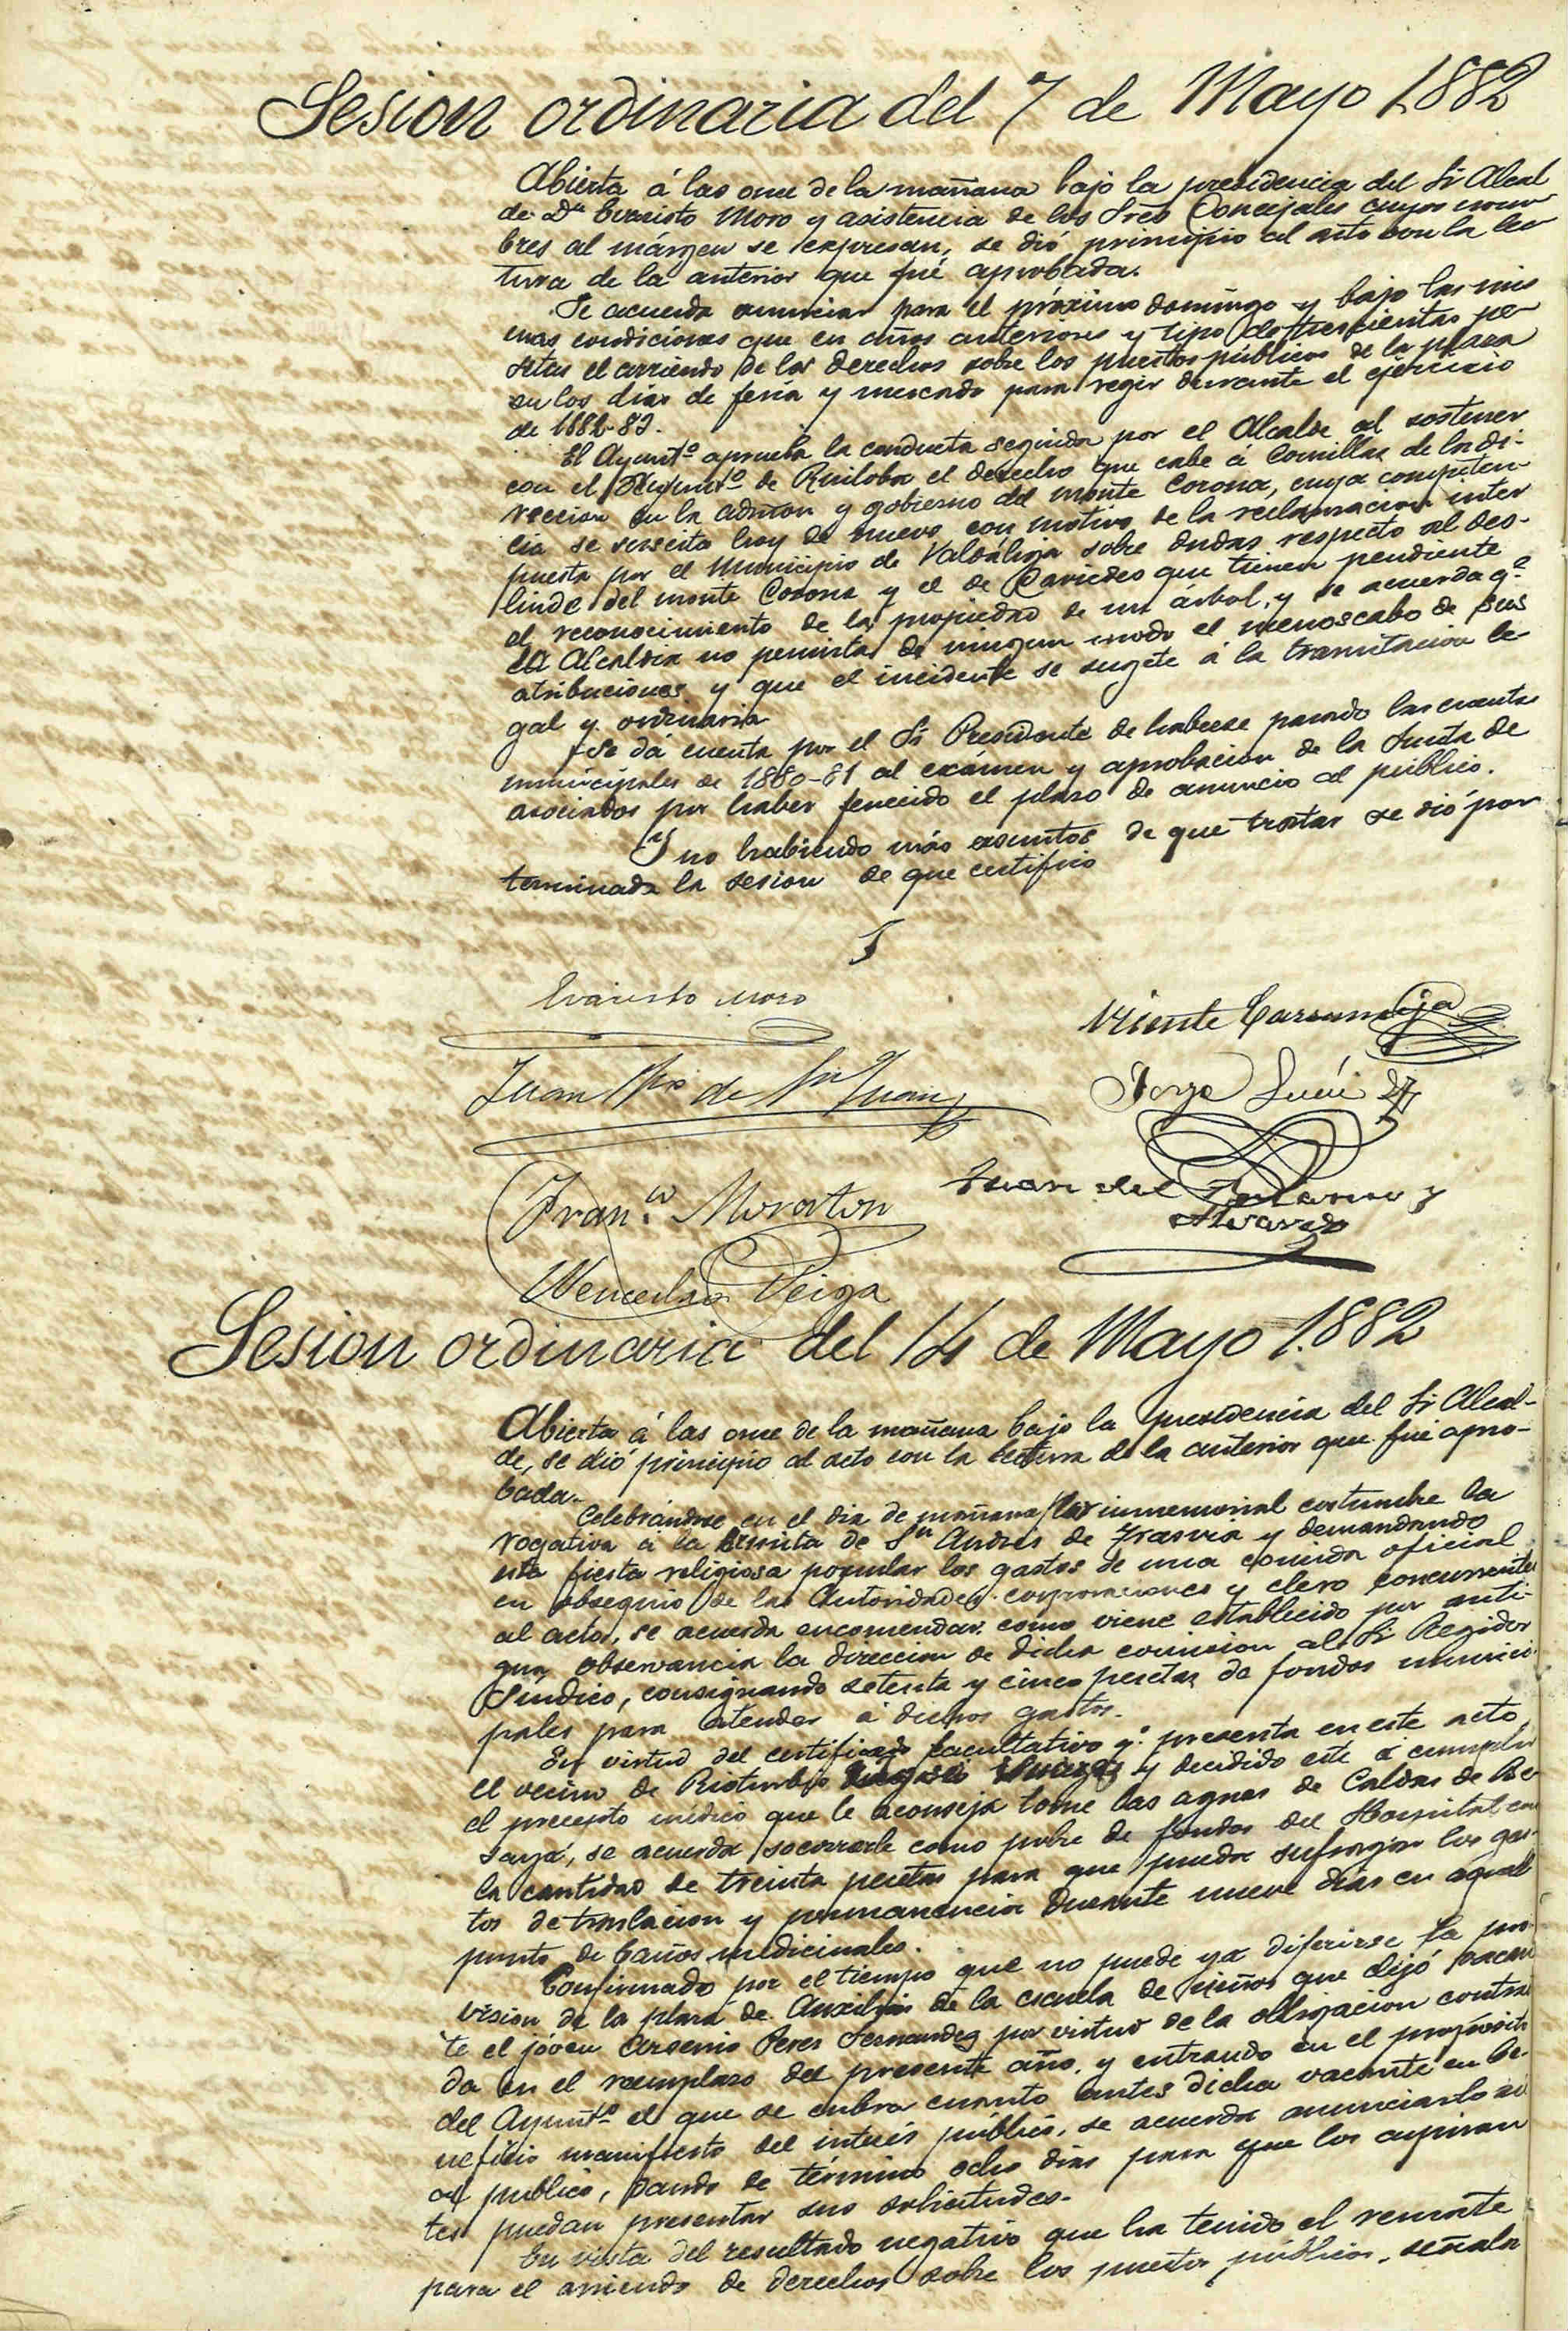 Sesion ordinaria del 7 de Mayo 1882
Abierta á las once de la mañana bajo la presidencia del Sr Alcal
de Dn Evaristo Moro y asistencia de los Sres Concejales cuyos nom
bres al márgen se expresan, se dió principio al acto con la lec
tura de la anterior que fué aprobada.
Se acuerda anunciar para el próximo domingo y bajo las mis
mas condiciones que en años anteriores y tipo de trescientas pe
setas el arriendo de los derechos sobre los puestos públicos de la plaza
en los dias de feria y mercado para regir durante el ejercicio
de 1882-83.
El Ayuntº aprueba la conducta seguida por el Alcalde al sostener
con el Ayuntº de Ruiloba el derecho que cabe á Comillas de la di-
reccion en la admon y gobierno del monte Corona, cuya competen
cia se suscita hoy de nuevo con motivo de la reclamacion inter
puesta por el Municipio de Valdáliga sobre dudas respecto al des-
linde del monte Corona y el de Caviedes que tienen pendiente
el reconocimiento de la propiedad de un árbol, y se acuerda qe
la Alcaldia no permita de ningun modo el menoscabo de sus
atribuciones y que el incidente se sugete á la tramitacion le-
gal y ordinaria
Se dá cuenta por el Sr Presidente de haberse pasado las cuentas
municipales de 1880-81 al exámen y aprobacion de la Junta de
asociados por haber fenecido el plazo de anuncio al público.
Y no habiendo más asuntos de que tratar se dió por
terminada la sesion de que certifico
Evaristo Moro
Vicente
Juan de Sn Juan
Jorge
Franco Moraton
Juan del y
Alvarado
Wenceslao Veiga
Sesion ordinaria del 14 de Mayo 1.882
Abierta á las once de la mañana bajo la presidencia del Sr Alcal-
de, se dió principio al acto con la lectura de la anterior que fué apro-
bada.
Celebrándose en el dia de mañana por inmemorial costumbre la
rogativa á la ermita de Sn Andrés de Trasvia y demandando
esta fiesta religiosa popular los gastos de una comida oficial
en obsequio de las Autoridades corporaciones y clero concurrente
al acto, se acuerda encomendar como viene establecido por anti-
gua observancia la direccion de dicha comision al Sr Regidor
Síndico, consignando setenta y cinco pesetas de fondos munici-
pales para atender á dichos gastos.
En virtud del certificado facultativo qe presenta en este acto
el vecino de Rioturbio y decidido este á cumplir
el precepto médico que le aconseja tome las aguas de Caldas de Be
saya, se acuerda socorrerle como pobre de fondos del Hospital con
la cantidad de treinta pesetas para que pueda sufragar los gas-
tos de traslacion y permanencia durante nueve dias en aquel
punto de baños medicinales.
Confirmado por el tiempo que no puede ya diferirse la pro
vision de la plaza de Auxiliar de la escuela de niños que dejó vacan
te el jóven Arsenio Perez Fernandez por virtud de la obligacion contrai
da en el reemplazo del presente año, y entrando en el propósito
del Ayuntº el que se cubra cuanto antes dicha vacante en be-
neficio manifiesto del interés público, se acuerda anunciarlo
al publico, dando de término ocho dias para que los aspiran
tes puedan presentar sus solicitudes.
En vista del resultado negativo que ha tenido el remate
para el arriendo de derechos sobre los puestos públicos, señala